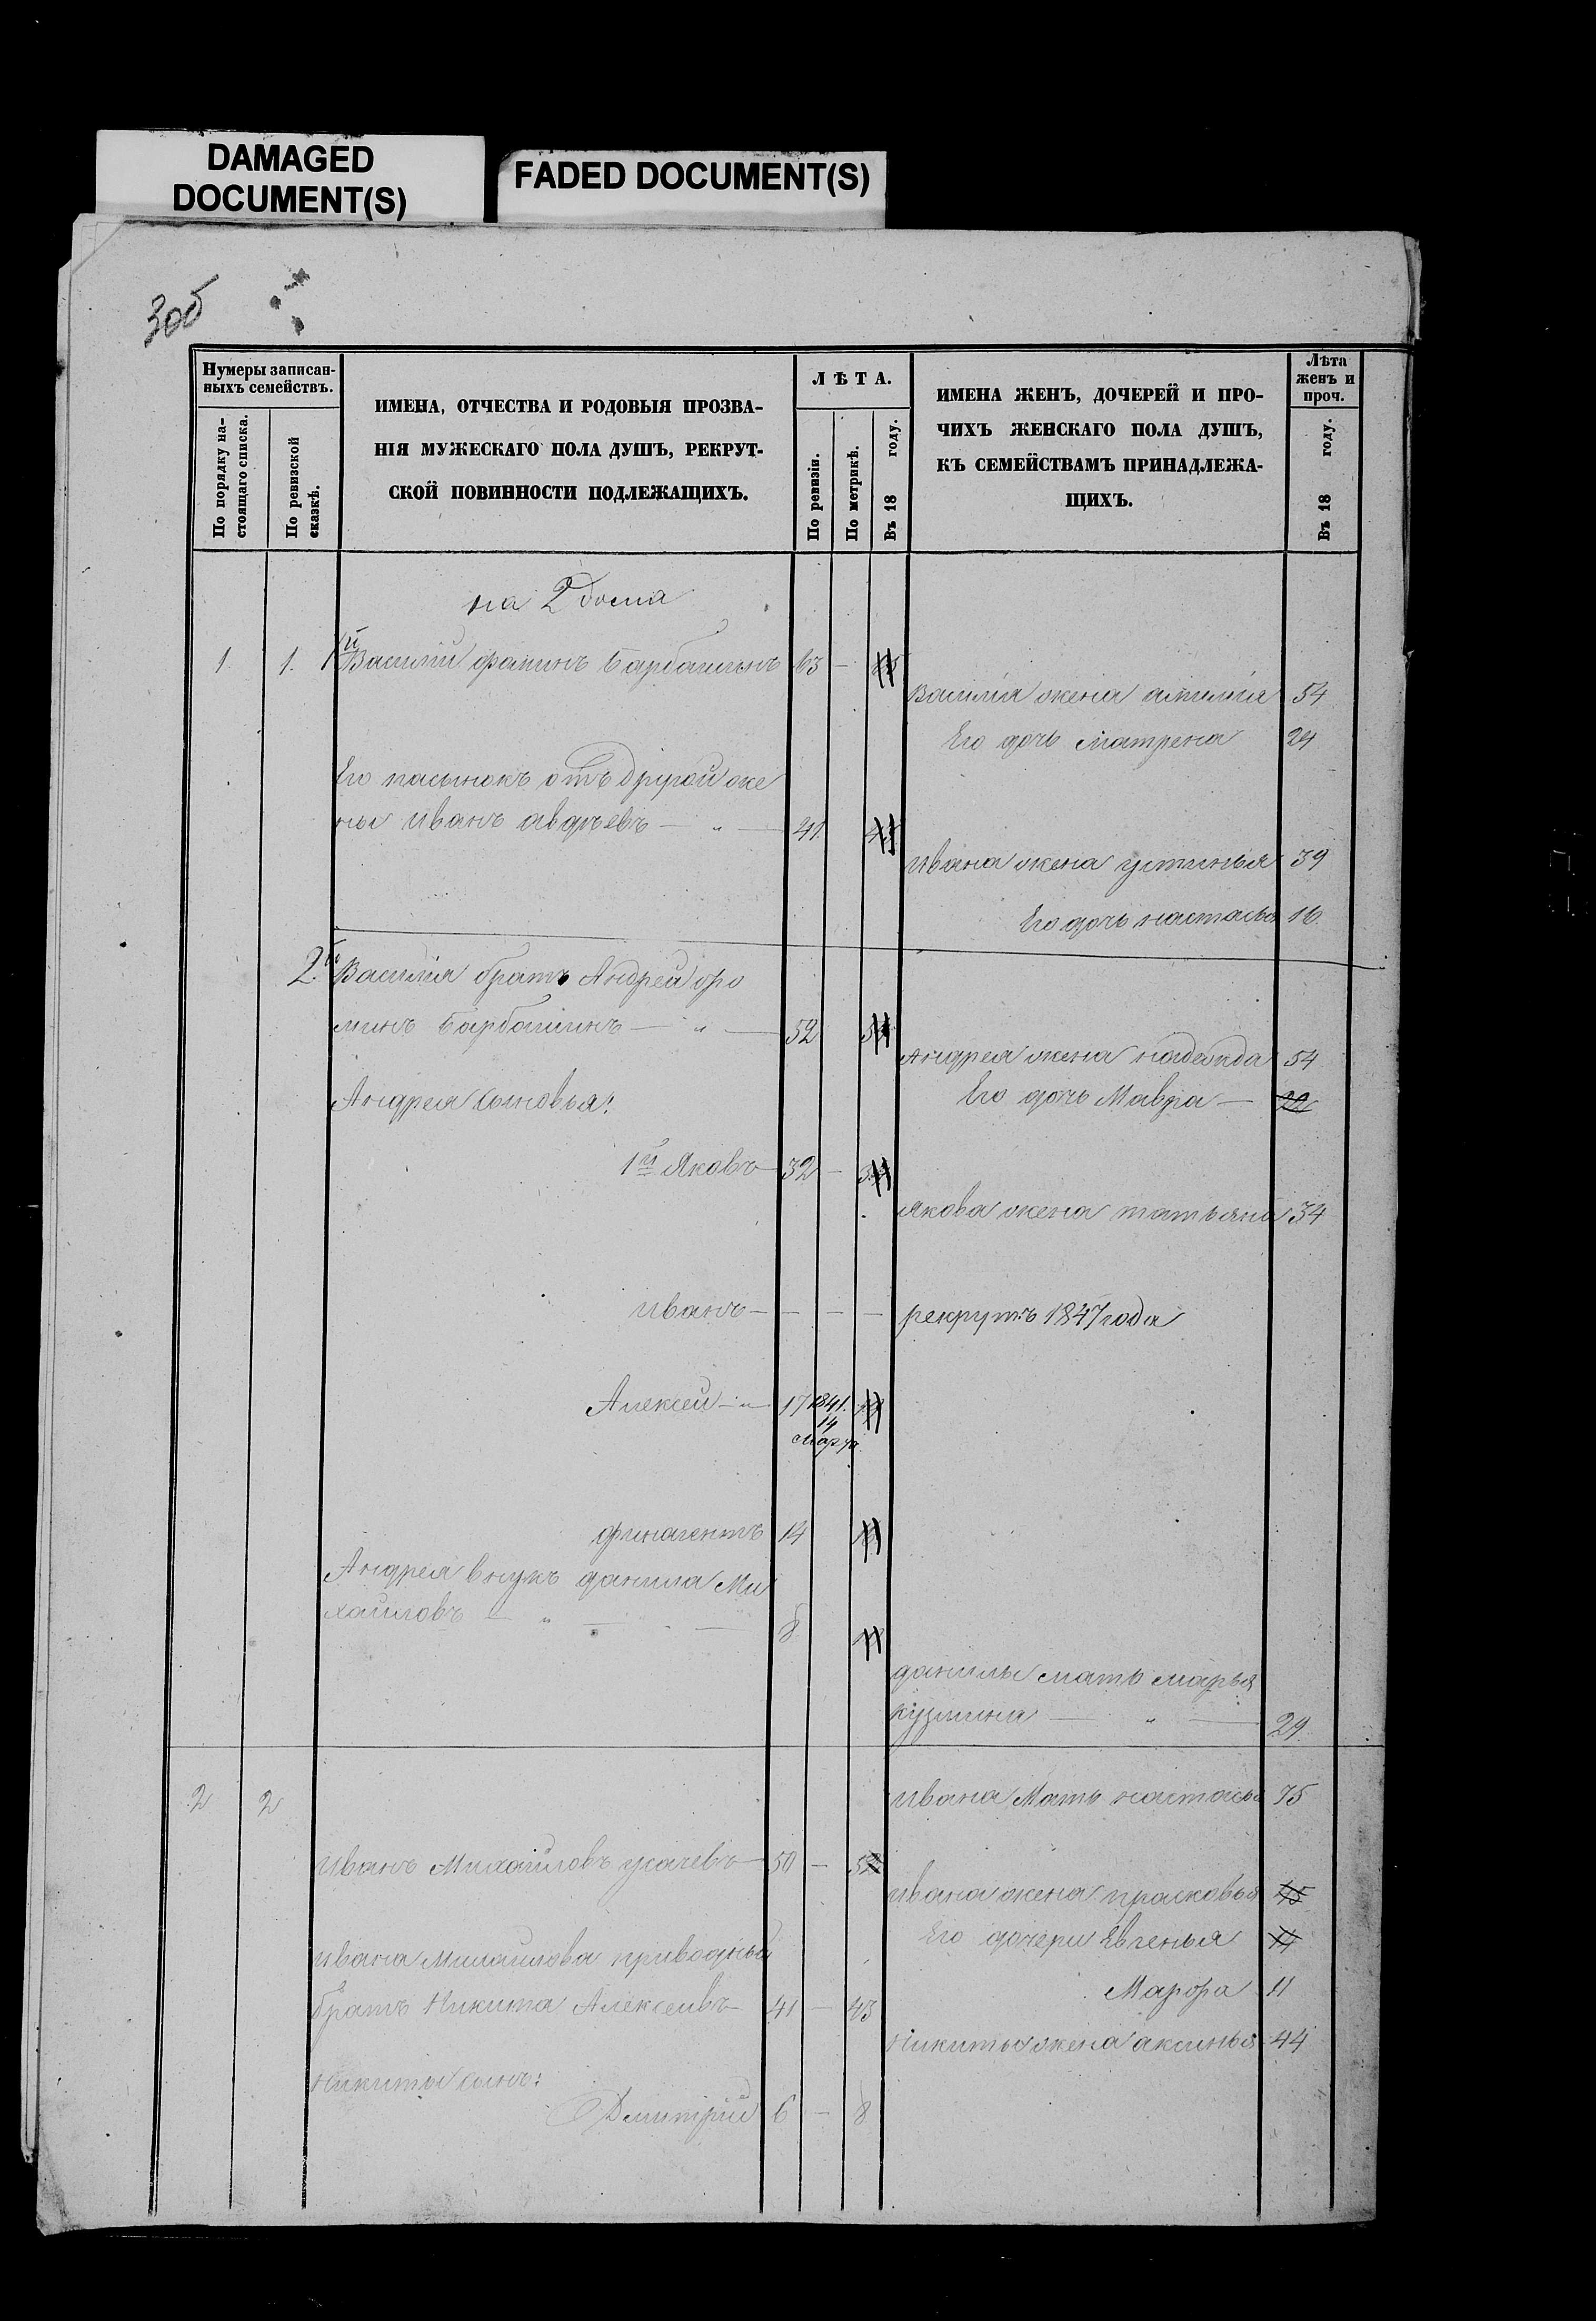 DAMAGED
DOCUMENT(S)
FADED DOCUMENT(S)
Нумеры записан-
ныхъ семействъ.
По порядку на-
стоящаго списка.
По ревизской
сказкѣ.
ИМЕНА, ОТЧЕСТВА И РОДОВЫЯ ПРОЗВА-
НІЯ МУЖЕСКАГО ПОЛА ДУШЪ, РЕКРУТ-
СКОЙ ПОВИННОСТИ ПОДЛЕЖАЩИХЪ.
ЛѢТА.
По ревизіи.
По метрикѣ.
Въ 18 году.
ИМЕНА ЖЕНЪ, ДОЧЕРЕЙ И ПРО-
ЧИХЪ ЖЕНСКАГО ПОЛА ДУШЪ,
КЪ СЕМЕЙСТВАМЪ ПРИНАДЛЕЖА-
ЩИХЪ.
Лѣта
женъ и
проч.
Въ 18 году.
на 2 дома
1. 1. 1й Василий фаминъ Барбашинъ 63 —
Василия жена 54
Его дочь матрена 24
Его пасынокъ отъ другой же
ны иванъ авдѣевъ — " — 41
ивана жена устинья 39
Его дочь настасья 16
2й Василия братъ Андрей фо
минъ Барбашинъ — " — 52
Андрея жена надежда 54
Андрея сыновья:
Его дочь Мавра — 22
1й Яковъ — 32 —
якова жена татьяна 34
иванъ — — — — рекрутъ 1847 года
Алексей — " — 17 1841.
14
марта
финагентъ 14
Андрея внукъ данила Ми
хайловъ — " — 8
данилы мать марья
кузмина — " — 29
2 2
ивана Мать настасья 75
иванъ Михайловъ усачевъ — 50 — 52
ивана жена прасковья 45
Его дочери Евгенья
ивана михайлова приводный
Марфа 11
братъ Никита Алексеивъ 41 — 43
Никиты жена аксинья 44
Никиты сынъ:
Дмитрий 6 — 8